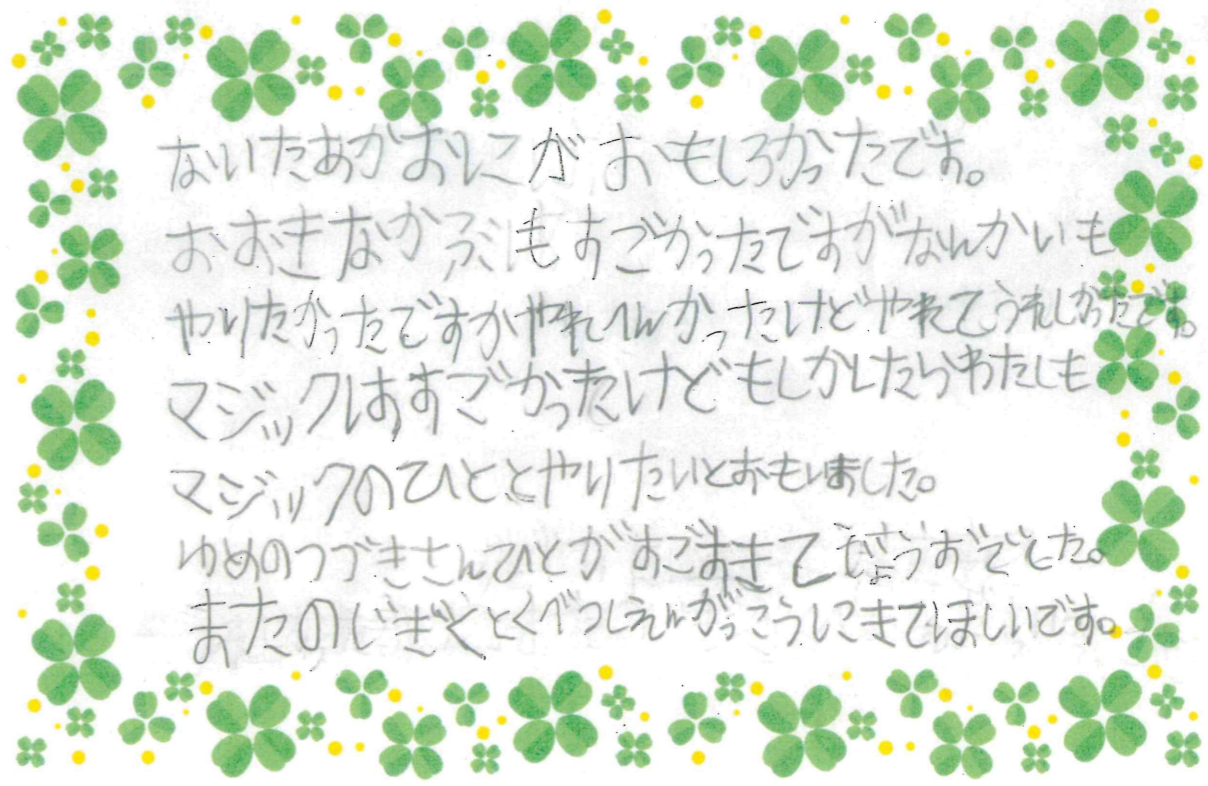 ないたあかおにがおもしろかったです。
おおきなかぶもすごかったですがなんかいも
やりたかったですかやれへんかったけどやれてうれしかったです。
マジックはすごかったけどもしかしたらわたしも
マジックのひととやりたいとおもいました。
ゆめのつづきさんひとがすごすきて じょうずでした。
またのじぎくとくべつしえんがっこうにきてほしいです。